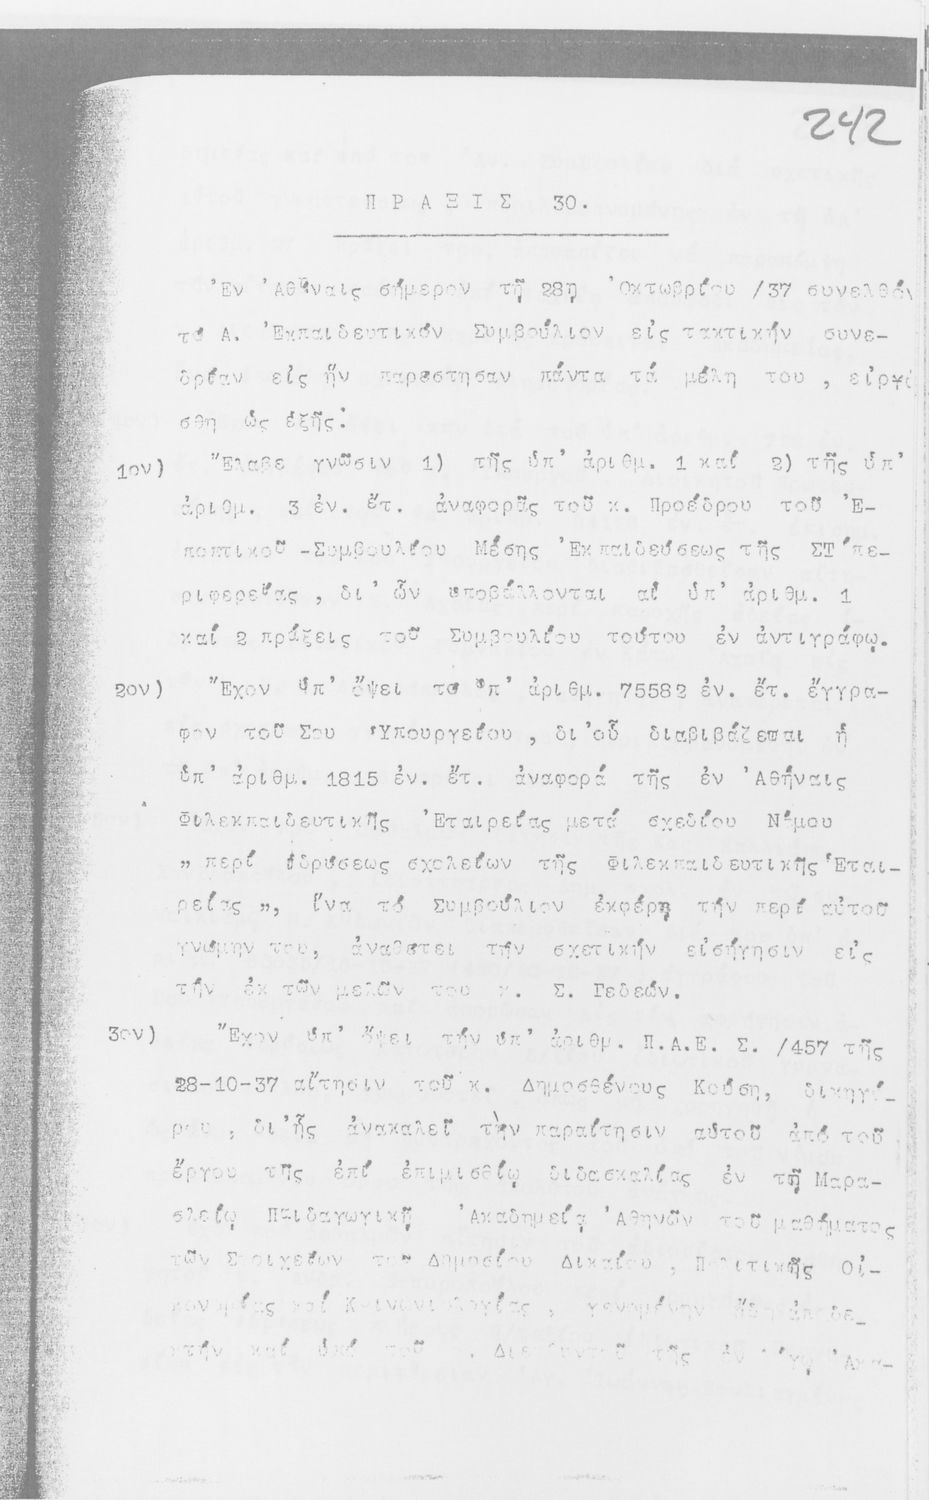 242
ΠΡΑΞΙΣ 30.
Ἐν Ἀθήναις σήμερον τῇ 28ῃ Ὀκτωβρίου /37 συνελθόν
τό Α. Ἐκπαιδευτικόν Συμβούλιον εἰς τακτικήν συνε-
δρίαν εἰς ἥν παρέστησαν πάντα τά μέλη του , εἰργά
σθη ὡς ἑξῆς:
1ον) Ἔλαβε γνῶσιν 1) τῆς ὑπ' ἀριθμ. 1 καί 2) τῆς ὑπ'
ἀριθμ. 3 ἐν. ἔτ. ἀναφορᾶς τοῦ κ. Προέδρου τοῦ Ἐ-
ποπτικοῦ -Συμβουλίου Μέσης Ἐκπαιδεύσεως τῆς ΣΤ΄πε-
ριφερείας , δι' ὧν ὑποβάλλονται αἱ ὑπ' ἀριθμ. 1
καί 2 πράξεις τοῦ Συμβουλίου τούτου ἐν ἀντιγράφῳ.
2ον) Ἔχον ὑπ' ὄψει τό ὑπ' ἀριθμ. 75582 ἐν. ἔτ. ἔγγρα-
φον τοῦ Σου Ὑπουργείου , δι'οὗ διαβιβάζεται ἡ
ὑπ' ἀριθμ. 1815 ἐν. ἔτ. ἀναφορά τῆς ἐν Ἀθήναις
Φιλεκπαιδευτικῆς Ἑταιρείας μετά σχεδίου Νόμου
" περί ἱδρύσεως σχολείων τῆς Φιλεκπαιδευτικῆς Ἑται-
ρείας ", ἵνα τό Συμβούλιον ἐκφέρῃ τήν περί αὐτοῦ
γνώμην του, ἀναθέτει τήν σχετικήν εἰσήγησιν εἰς
τήν ἐκ τῶν μελῶν του κ. Σ. Γεδεών.
3ον) Ἔχον ὑπ' ὄψει τήν ὑπ' ἀριθμ. Π.Α.Ε. Σ. /457 τῆς
28-10-37 αἴτησιν τοῦ κ. Δημοσθένους Κούση, δικηγό_
ρου , δι'ἧς ἀνακαλεῖ τὴν παραίτησιν αὐτοῦ ἀπό τοῦ
ἔργου τῆς ἐπί ἐπιμισθίῳ διδασκαλίας ἐν τῇ Μαρα-
σλείῳ Παιδαγωγικῇ Ἀκαδημείᾳ Ἀθηνῶν τοῦ μαθήματος
τῶν Στοιχείων τοῦ Δημοσίου Δικαίου , Πολιτικῆς Οἰ-
κονομίας καί Κοινωνιολογίας , γενομένην ἤδη ἀποδε_
κτήν καί ὑπό τοῦ . Διευθυντοῦ τῆς ἐν Ἀκα-